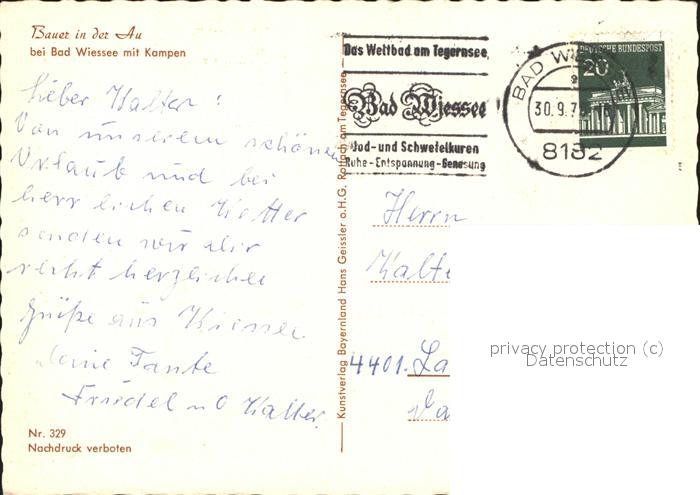 Bauer in der Au
bei Bad Wiessee mit Kampen
Lieber Walter!
Von unserem schönen
Urlaub und bei
herrlichen Wetter
senden wir dir
recht herzliche
Grüße aus Wiessee
deine Tante
Friedel u O Walter
Nr. 329
Nachdruck verboten
Kunstverlag Bayernland Hans Geissler o.H.G. Rottach am Tegernsee
Das Weltbad am Tegernsee
Bad Wiessee
Jod- und Schwefelkuren
Ruhe-Entspannung-Genesung
BAD W
30.9.7
8182
DEUTSCHE BUNDESPOST
20
Herrn
Walte
4401 La
privacy protection (c)
Datenschutz